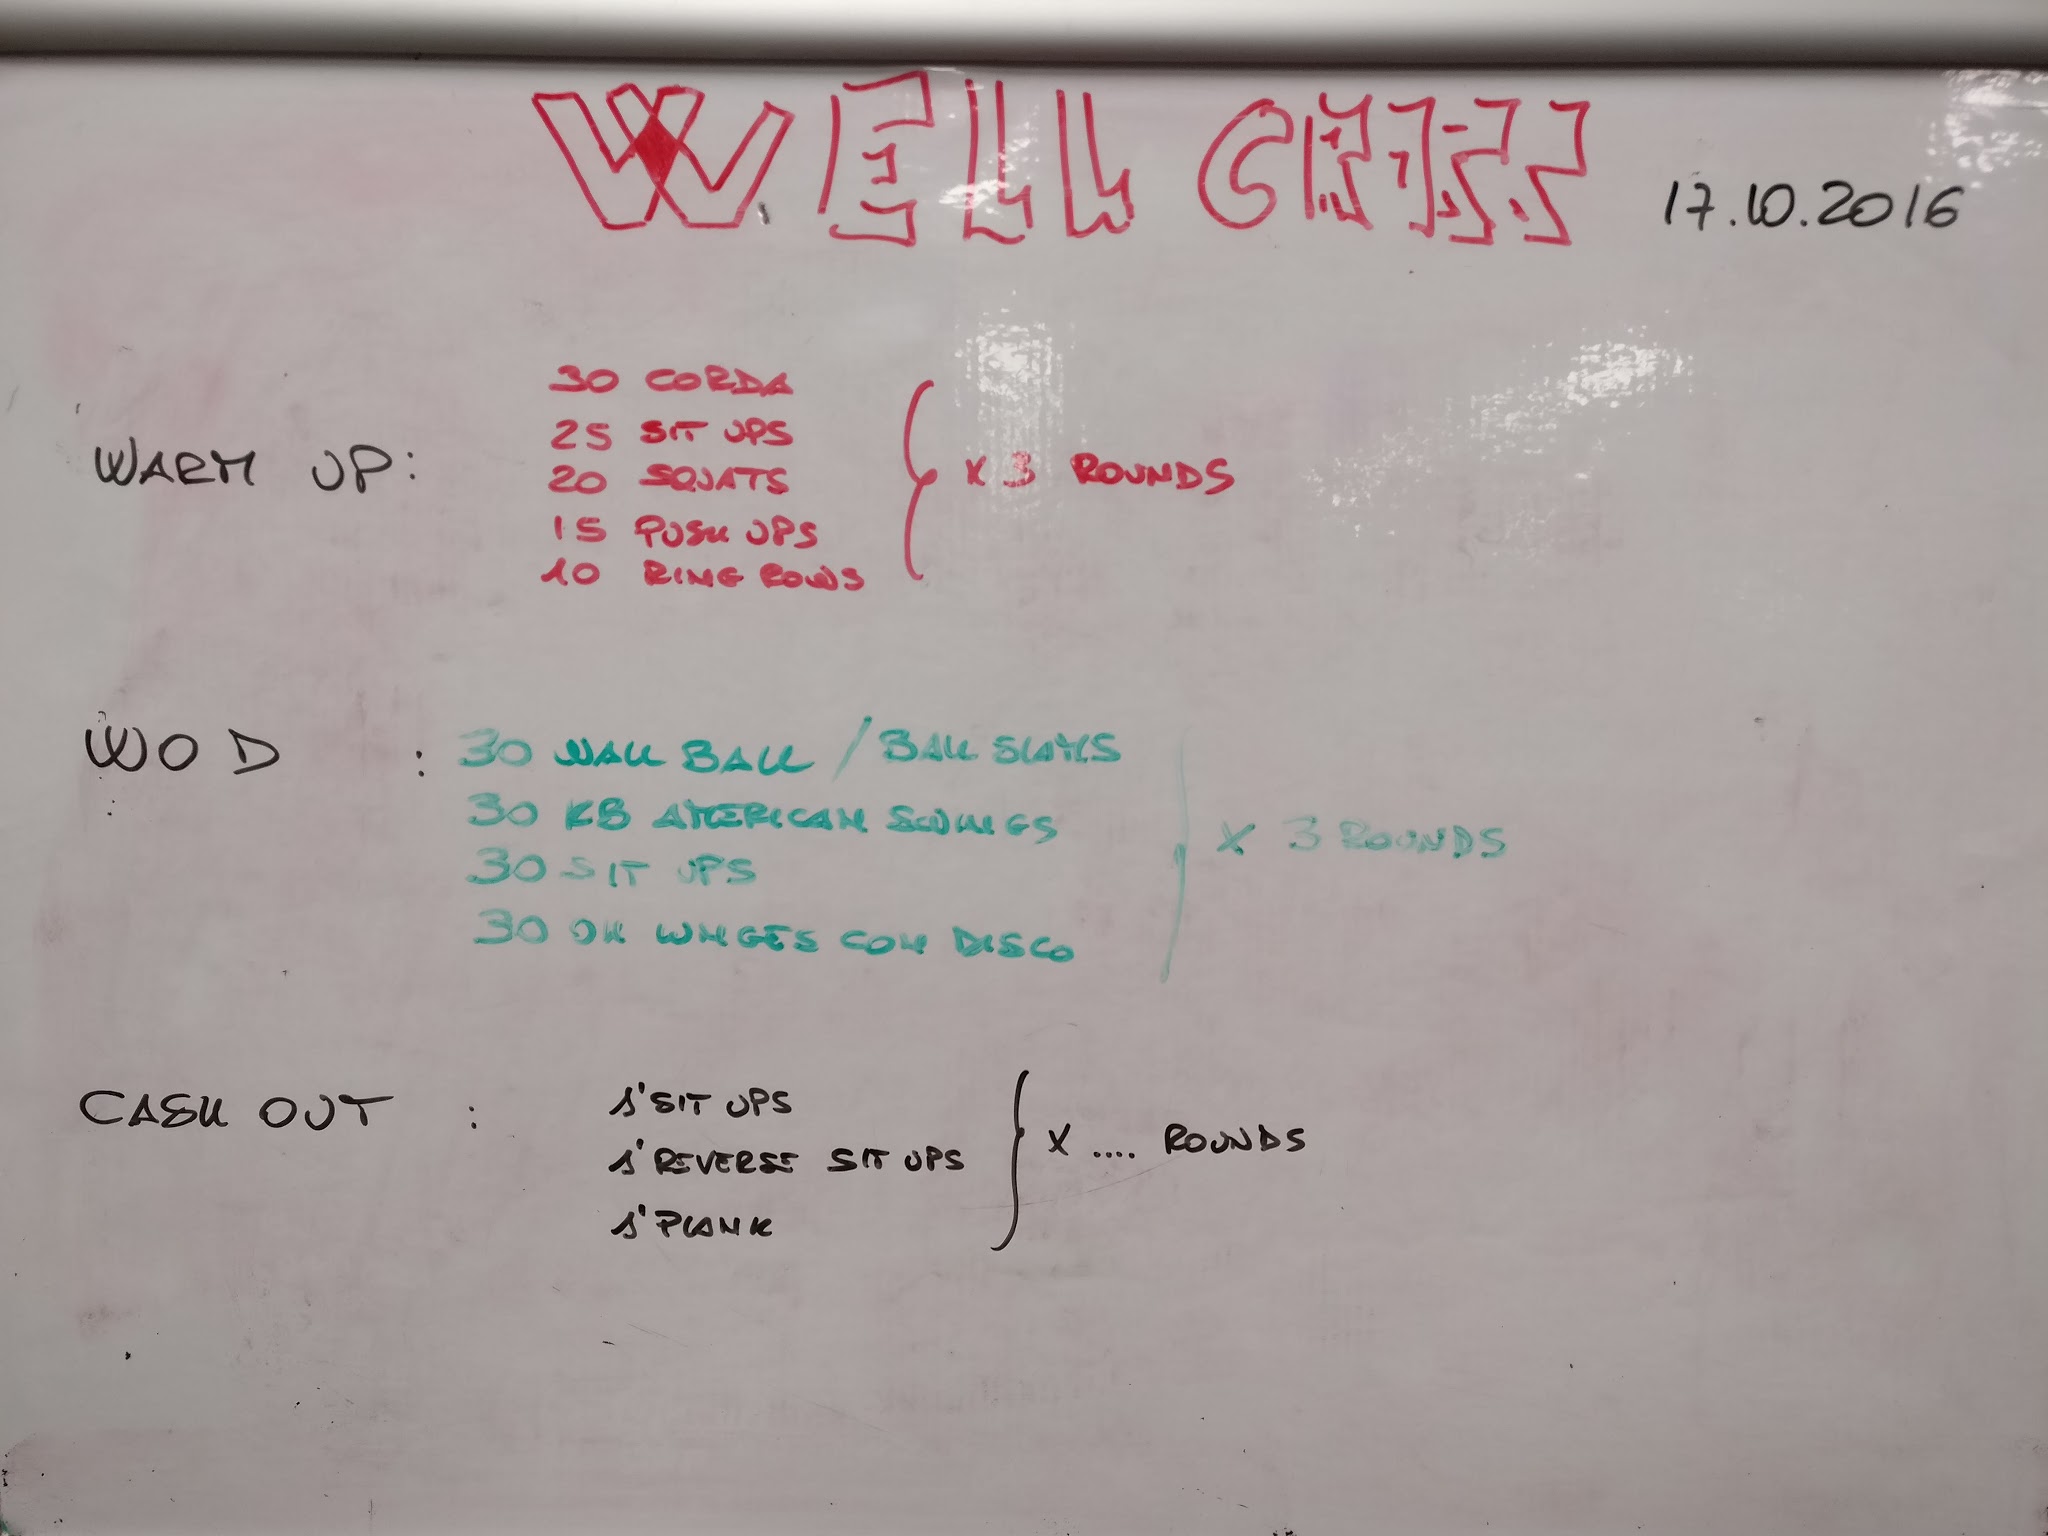 WELL CROSS
17.10.2016
WARM UP:
30 CORDA
25 SIT UPS
20 SQUATS
15 PUSH UPS
10 RING ROWS
x 3 ROUNDS
WOD :
30 WALL BALL / BALL SLAMS
30 KB AMERICAN SWINGS
30 SIT UPS
30 OH LUNGES CON DISCO
x 3 ROUNDS
CASH OUT :
1' SIT UPS
1' REVERSE SIT UPS
1' PLANK
x .... ROUNDS